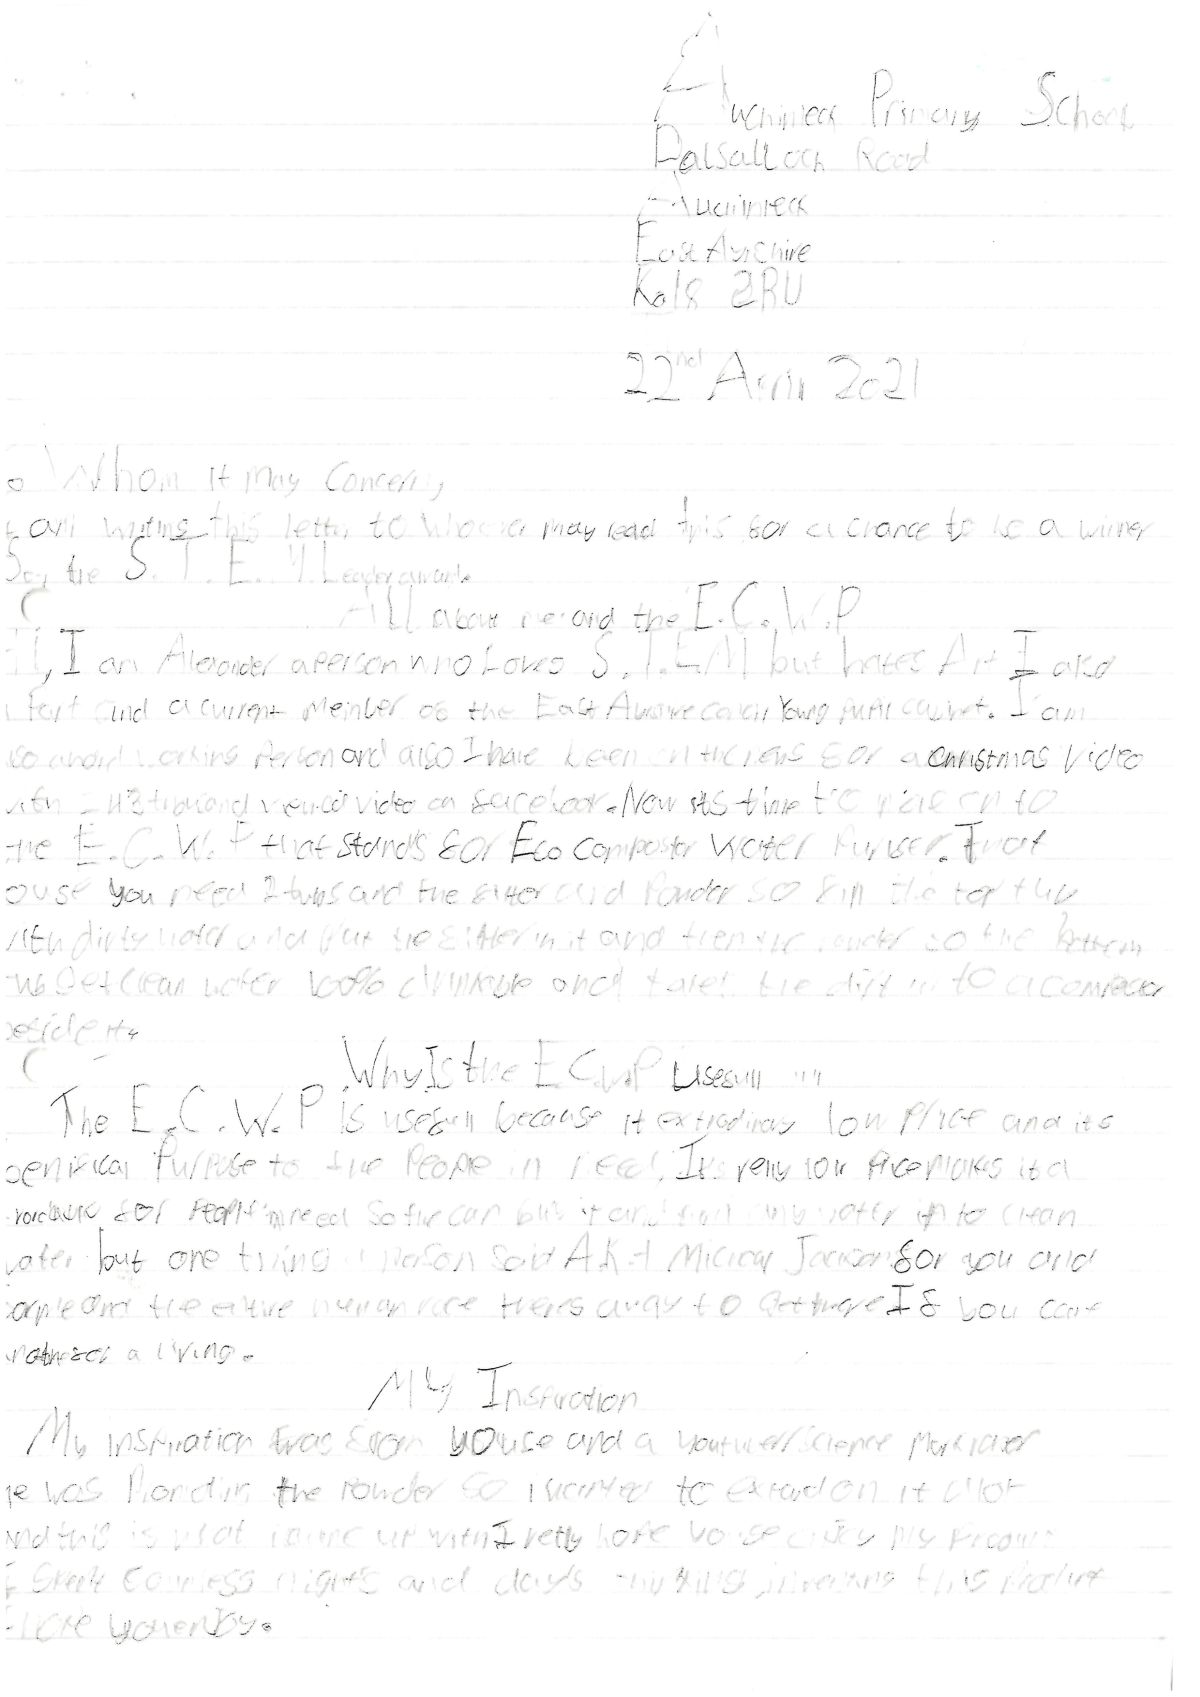 Auchinleck Primary School
Dalsalloch Road
Auchinleck
East Ayrshire
Ka18 2RU
22nd April 2021
o Whom It May Concern,
am writing this letter to whoever may read this for a chance to be a winner
for the S.T.E.M. Leader award.
All about me and the E.C.W.P
I am Alexander a person who Loves S.T.E.M but hates Art I also
and a current Member of the East Ayrshire Young Pupil cabinet. I am
working Person and also I have been on the news for a christmas video
thousand video on facebook. Now its time to on to
the E.C.W.P that stands for Eco Composter Water Purifier. To
ouse you need 2 tubs and the filter and Powder so fill the top tub
with dirty water and Put the filter in it and then the Powder so the Bottem
get clean water 100% drinkable and the dirt in to a composter
beside it.
Why Is the E.C.W.P Usefull
The E.C.W.P is usefull because it low Price and its
Purpose to the People in need. Its relly low Price Makes it a
for People in need so the can buy it and turn any water in to clean
water but one thing a Person Said A.K.A Micheal Jackson for you and
for me and the entire human race theres a way to get there If you care
enough for a living.
My Inspiration
My inspiration Was from youse and a youtuber/science Mark rober
he was the Powder so i wanted to expand on it alot
and this is what i came up with I relly hope youse enjoy My Product
I Spent Countless nights and day's inventing this Product
I hope you enjoy.